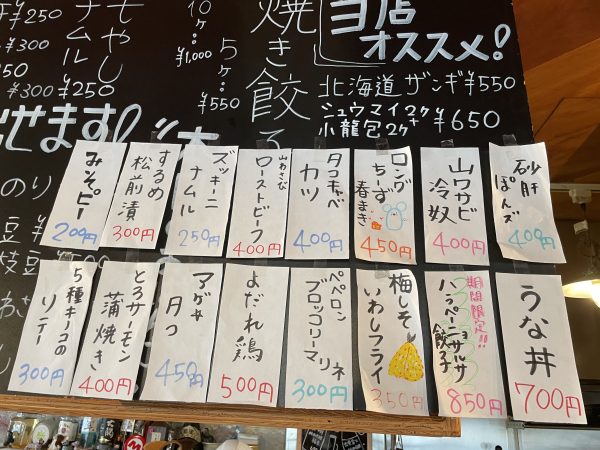 当店
オススメ!
北海道 ザンギ ¥550
シュウマイ2ヶ
小龍包2ヶ ¥650
焼き餃子
5ヶ…
¥550
10ヶ…
¥1,000
ナムル
¥250
¥300
もやし
¥250
¥300
せます!
のり
砂肝
ぽんず
400円
山ワサビ
冷奴
400円
ロング
ちーず
春まき
450円
タコキャベ
カツ
400円
山わさび
ローストビーフ
400円
ズッキーニ
ナムル
250円
するめ
松前漬
300円
みそピー
200円
うな丼
700円
期間限定!!
ハラペーニョサルサ
餃子
850円
梅しそ
いわしフライ
350円
ペペロン
ブロッコリーマリネ
300円
よだれ鶏
500円
マグロ
450円
とろサーモン
蒲焼き
400円
5種キノコの
300円